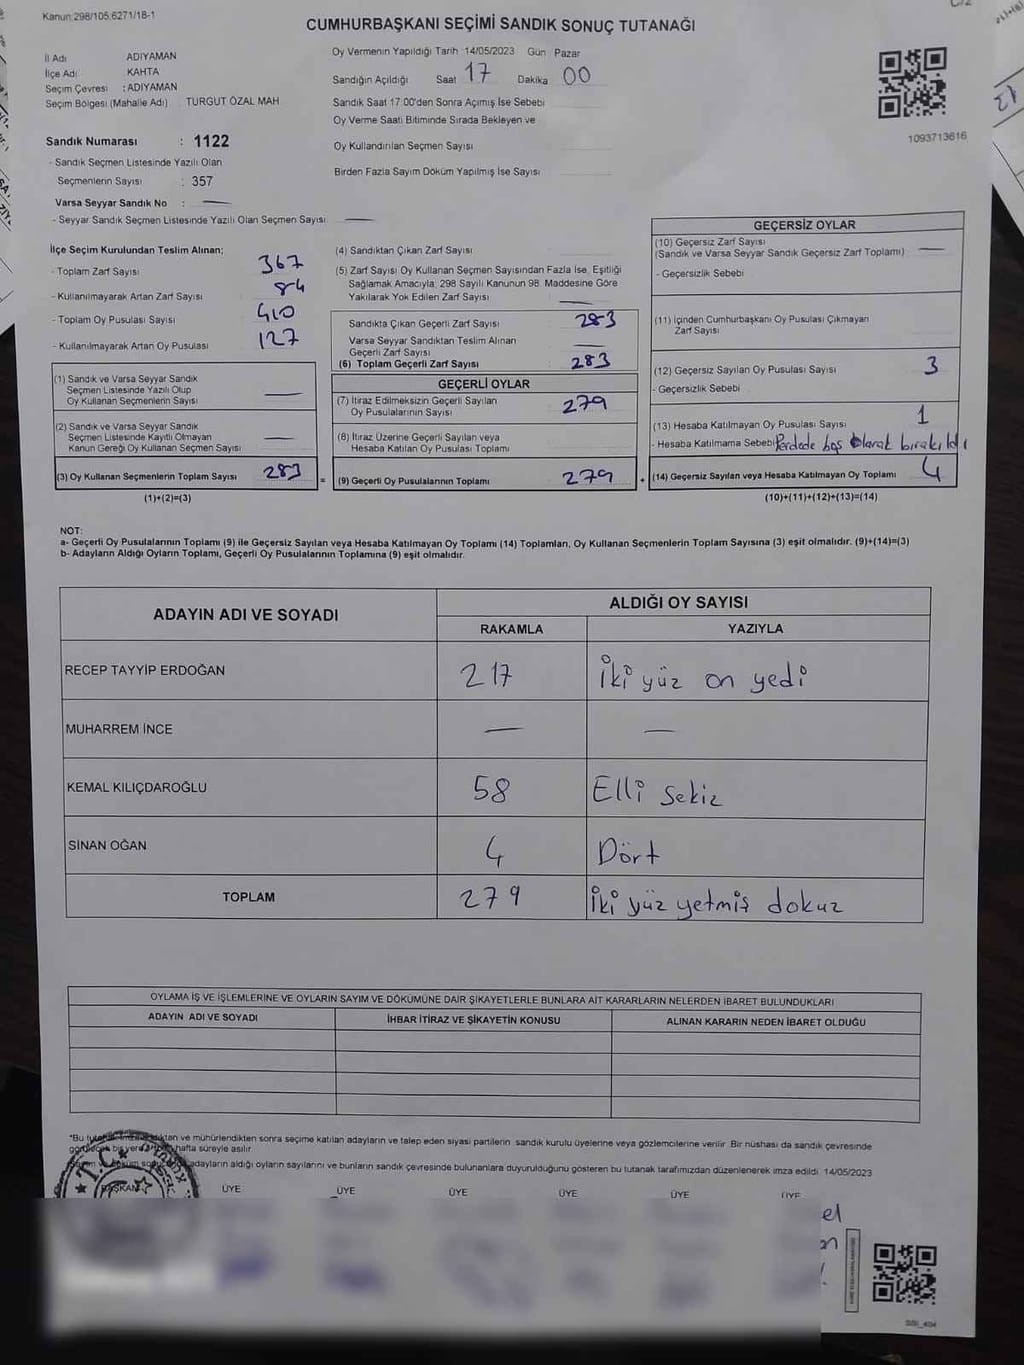 Kanun:298/105,6271/18-1
CUMHURBAŞKANI SEÇİMİ SANDIK SONUÇ TUTANAĞI
İl Adı ADIYAMAN
İlçe Adı KAHTA
Seçim Çevresi : ADIYAMAN
Seçim Bölgesi (Mahalle Adı) TURGUT ÖZAL MAH
Oy Vermenin Yapıldığı Tarih 14/05/2023 Gün Pazar
Sandığın Açıldığı Saat 17 Dakika 00
Sandık Saat 17:00'den Sonra Açımış İse Sebebi
Oy Verme Saati Bitiminde Sırada Bekleyen ve
Oy Kullandırılan Seçmen Sayısı
Birden Fazla Sayım Döküm Yapılmış İse Sayısı
1093713616
Sandık Numarası : 1122
- Sandık Seçmen Listesinde Yazılı Olan
Seçmenlerin Sayısı : 357
Varsa Seyyar Sandık No : —
- Seyyar Sandık Seçmen Listesinde Yazılı Olan Seçmen Sayısı —
İlçe Seçim Kurulundan Teslim Alınan;
- Toplam Zarf Sayısı 367
- Kullanılmayarak Artan Zarf Sayısı 84
- Toplam Oy Pusulası Sayısı 410
- Kullanılmayarak Artan Oy Pusulası 127
(1) Sandık ve Varsa Seyyar Sandık
Seçmen Listesinde Yazılı Olup
Oy Kullanan Seçmenlerin Sayısı —
(2) Sandık ve Varsa Seyyar Sandık
Seçmen Listesinde Kayıtlı Olmayan
Kanun Gereği Oy Kullanan Seçmen Sayısı —
(3) Oy Kullanan Seçmenlerin Toplam Sayısı 283
(1)+(2)=(3)
(4) Sandıktan Çıkan Zarf Sayısı
(5) Zarf Sayısı Oy Kullanan Seçmen Sayısından Fazla İse, Eşitliği
Sağlamak Amacıyla, 298 Sayılı Kanunun 98. Maddesine Göre
Yakılarak Yok Edilen Zarf Sayısı —
Sandıkta Çıkan Geçerli Zarf Sayısı 283
Varsa Seyyar Sandıktan Teslim Alınan
Geçerli Zarf Sayısı —
(6) Toplam Geçerli Zarf Sayısı 283
GEÇERLİ OYLAR
(7) İtiraz Edilmeksizin Geçerli Sayılan
Oy Pusulalarının Sayısı 279
(8) İtiraz Üzerine Geçerli Sayılan veya
Hesaba Katılan Oy Pusulası Toplamı
= (9) Geçerli Oy Pusulalarının Toplamı 279 +
GEÇERSİZ OYLAR
(10) Geçersiz Zarf Sayısı
(Sandık ve Varsa Seyyar Sandık Geçersiz Zarf Toplamı) —
- Geçersizlik Sebebi
(11) İçinden Cumhurbaşkanı Oy Pusulası Çıkmayan
Zarf Sayısı
(12) Geçersiz Sayılan Oy Pusulası Sayısı 3
- Geçersizlik Sebebi
(13) Hesaba Katılmayan Oy Pusulası Sayısı 1
- Hesaba Katılmama Sebebi Perdede boş olarak bırakıldı
(14) Geçersiz Sayılan veya Hesaba Katılmayan Oy Toplamı 4
(10)+(11)+(12)+(13)=(14)
NOT:
a- Geçerli Oy Pusulalarının Toplamı (9) ile Geçersiz Sayılan veya Hesaba Katılmayan Oy Toplamı (14) Toplamları, Oy Kullanan Seçmenlerin Toplam Sayısına (3) eşit olmalıdır. (9)+(14)=(3)
b- Adayların Aldığı Oyların Toplamı, Geçerli Oy Pusulalarının Toplamına (9) eşit olmalıdır.
ADAYIN ADI VE SOYADI
ALDIĞI OY SAYISI
RAKAMLA YAZIYLA
RECEP TAYYİP ERDOĞAN 217 İki yüz on yedi
MUHARREM İNCE — —
KEMAL KILIÇDAROĞLU 58 Elli Sekiz
SİNAN OĞAN 4 Dört
TOPLAM 279 İki yüz yetmiş dokuz
OYLAMA İŞ VE İŞLEMLERİNE VE OYLARIN SAYIM VE DÖKÜMÜNE DAİR ŞİKAYETLERLE BUNLARA AİT KARARLARIN NELERDEN İBARET BULUNDUKLARI
ADAYIN ADI VE SOYADI İHBAR İTİRAZ VE ŞİKAYETİN KONUSU ALINAN KARARIN NEDEN İBARET OLDUĞU
*Bu ve mühürlendikten sonra seçime katılan adayların ve talep eden siyasi partilerin sandık kurulu üyelerine veya gözlemcilerine verilir. Bir nüshası da sandık çevresinde
hafta süreyle asılır.
adayların aldığı oyların sayılarını ve bunların sandık çevresinde bulunanlara duyurulduğunu gösteren bu tutanak tarafımızdan düzenlenerek imza edildi. 14/05/2023
T.C.
BAŞKAN ÜYE ÜYE ÜYE ÜYE ÜYE ÜYE
el